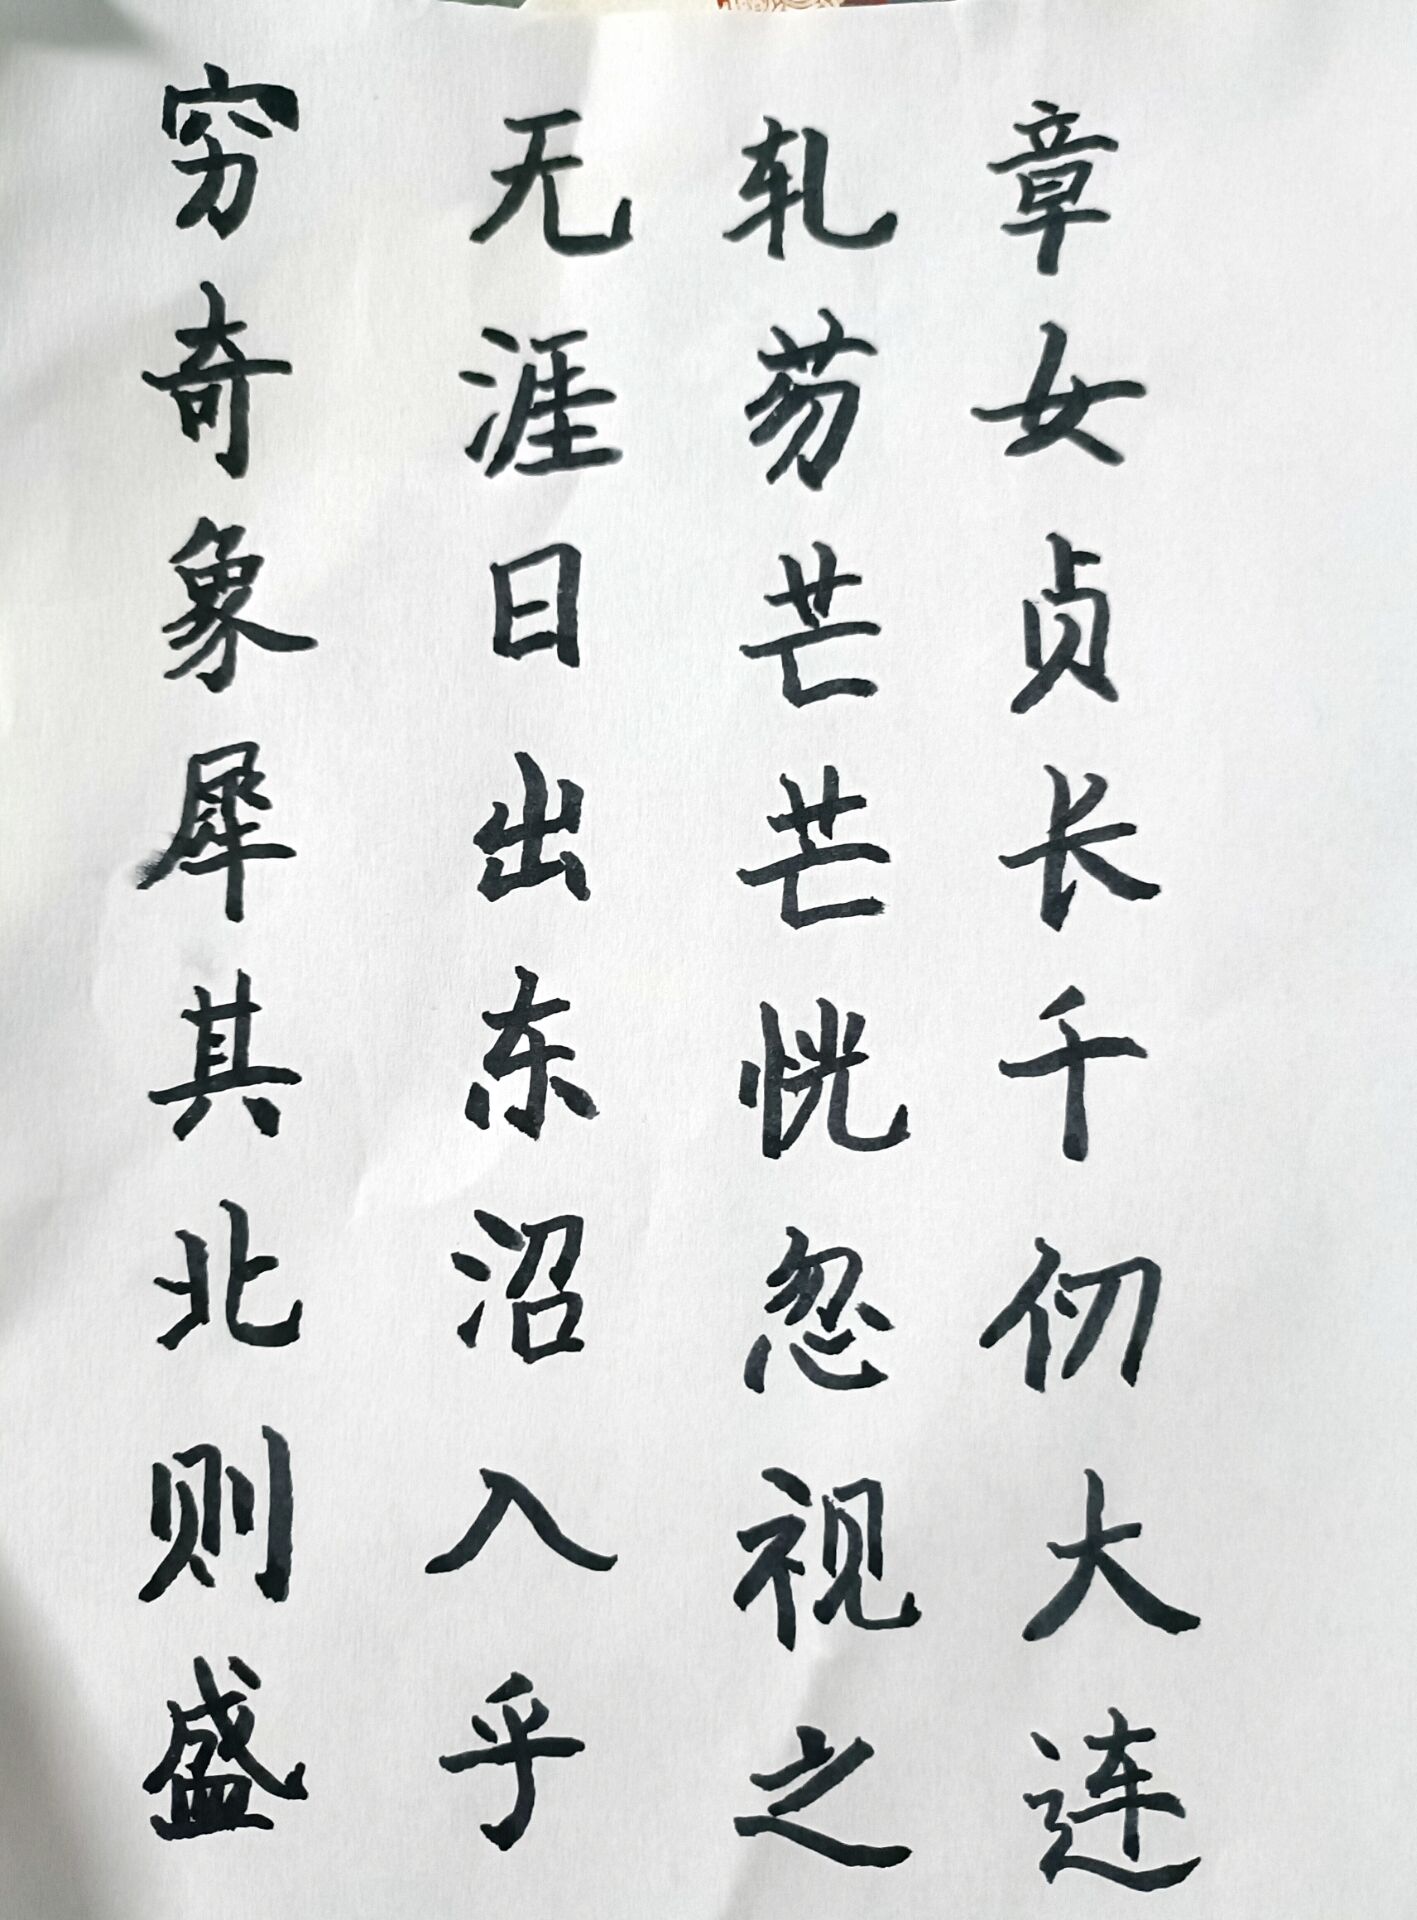 章女贞长千仞大连
轧芴芒芒恍忽视之
无涯日出东沼入乎
穷奇象犀其北则盛